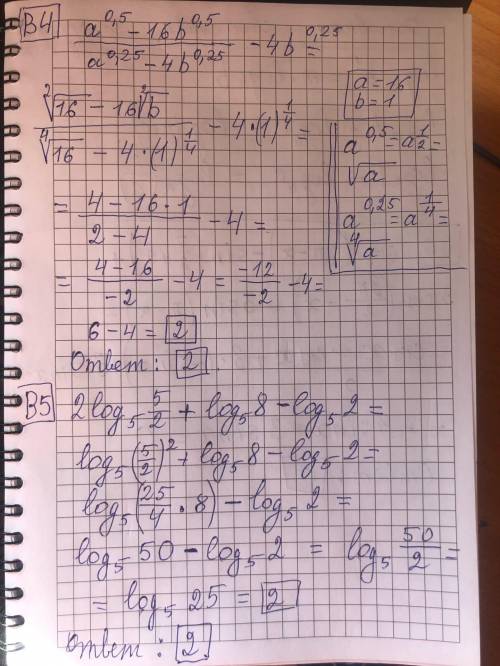 B4 (a^0,5 − 16b^0,5)/(a^0,25 − 4b^0,25) − 4b^0,25 =
a = 16
b = 1
(²√16 − 16 ²√b)/(⁴√16 − 4·(1)^1/4) − 4·(1)^1/4 =
a^0,5 = a^1/2 =
√a
a^0,25 = a^1/4 =
⁴√a
= (4 − 16·1)/(2 − 4) − 4 =
= (4 − 16)/−2 − 4 = −12/−2 − 4 =
6 − 4 = 2
Ответ: 2.
B5 2log₅ 5/2 + log₅ 8 − log₅ 2 =
log₅ (5/2)² + log₅ 8 − log₅ 2 =
log₅ (25/4 · 8) − log₅ 2 =
log₅ 50 − log₅ 2 = log₅ 50/2 =
= log₅ 25 = 2
Ответ: 2.